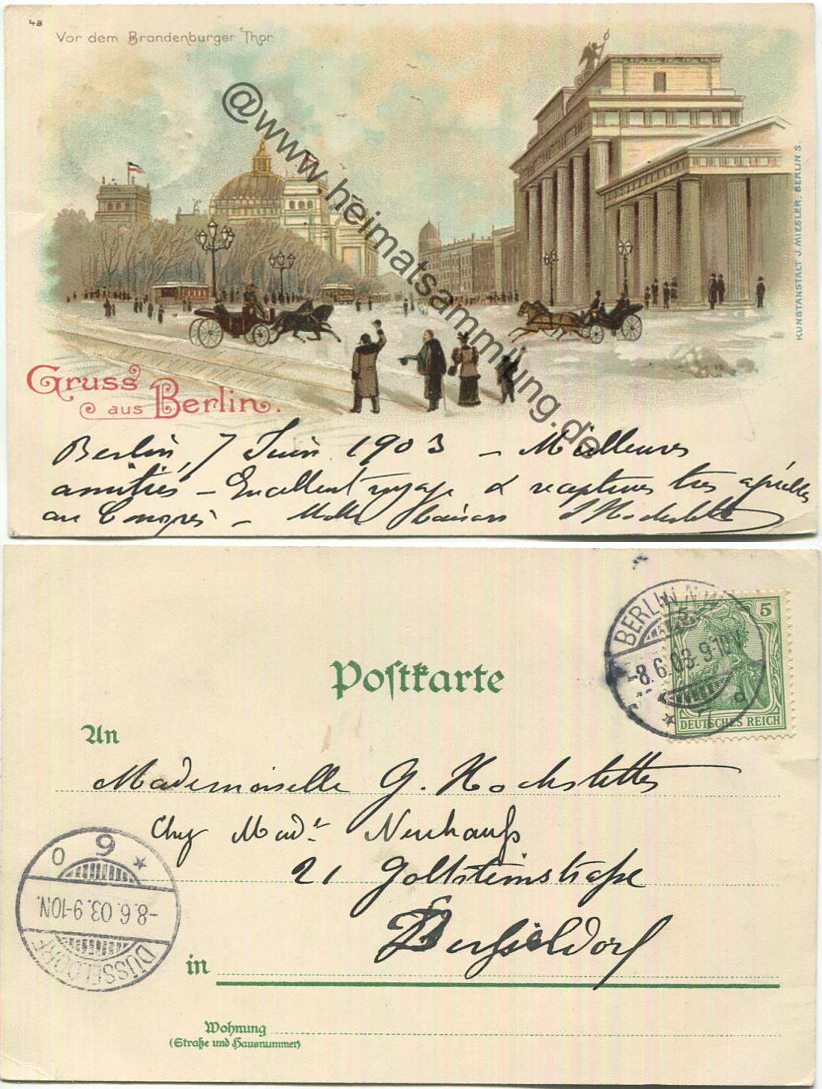 48
Vor dem Brandenburger Thor
@www.heimatsammlung.de
KUNSTANSTALT J. MIESLER, BERLIN S.
Gruss
aus Berlin.
Berlin, 7 Juin 1903 – Meilleures
amitiés – Excellent voyage & réceptions très
au Congrès –
BERLIN N.W.
-8.6.03.9-10V.
d
5 5
DEUTSCHES REICH
Poſtkarte
An
Mademoiselle G. Hochstetter
Chez Made Neuhauſs
21 Goltsteinstraſse
Düsseldorf
9
o *
-8.6.03.9-10N.
DÜSSELDORF
in
Wohnung
(Straße und Hausnummer)